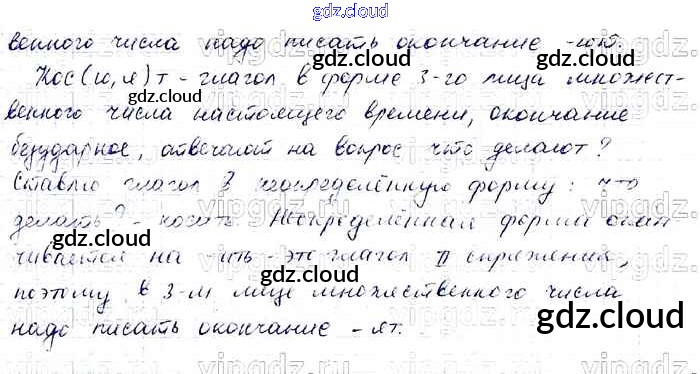 gdz.cloud
венного числа надо писать окончание -ют.
Кос(ю,я)т - глагол в форме 3-го лица множест-
венного числа настоящего времени, окончание
безударное, отвечают на вопрос что делают?
Ставлю глагол в неопределённую форму: что
делать? - косить. Неопределённая форма окан
чивается на -ить - это глагол II спряжения,
поэтому в 3-м лице множественного числа
надо писать окончание -ят.
gdz.cloud
gdz.cloud
gdz.cloud
gdz.cloud
gdz.cloud
gdz.cloud
gdz.cloud